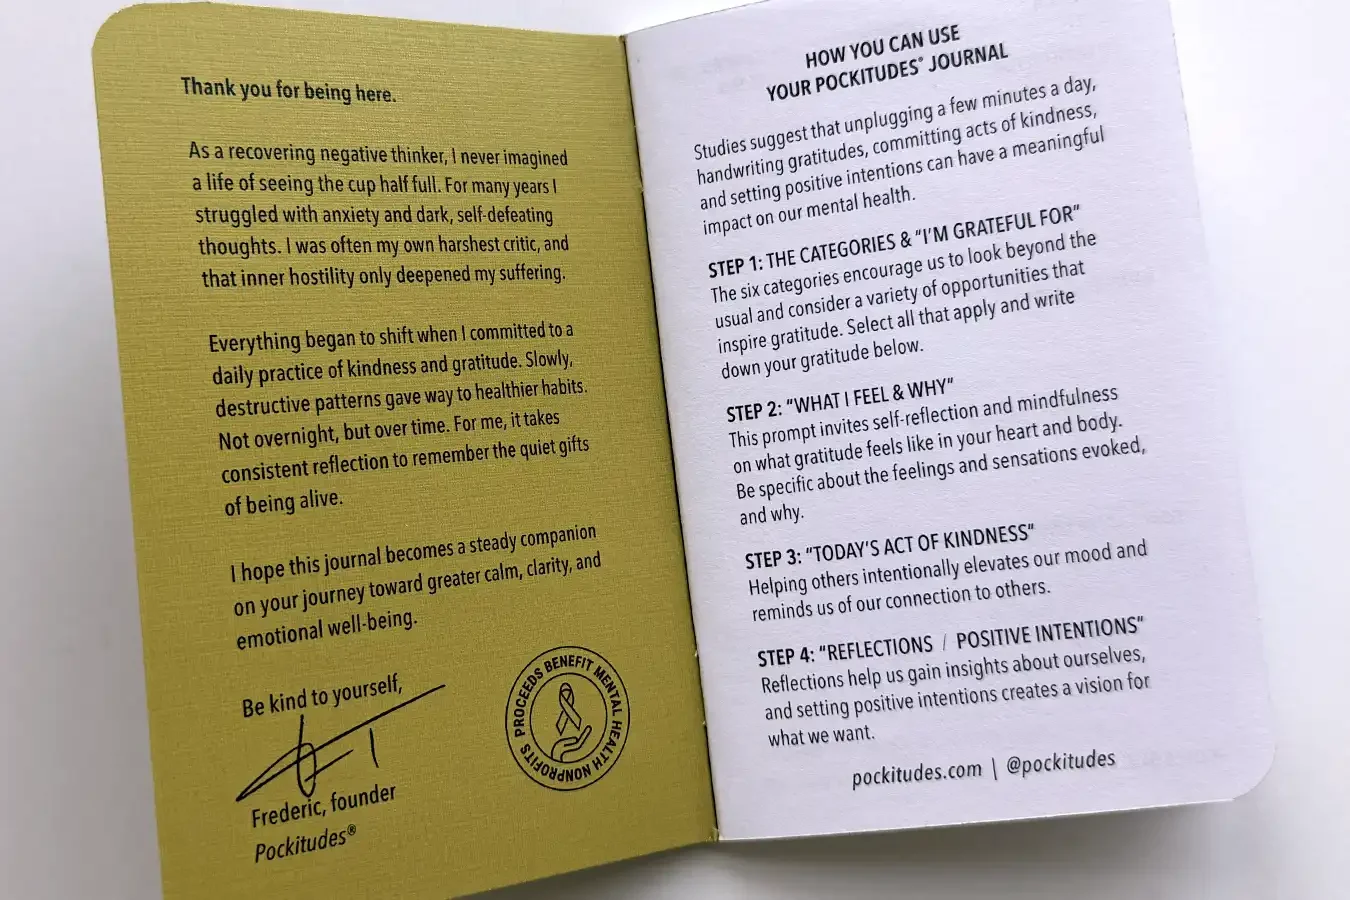 Thank you for being here.
As a recovering negative thinker, I never imagined
a life of seeing the cup half full. For many years I
struggled with anxiety and dark, self-defeating
thoughts. I was often my own harshest critic, and
that inner hostility only deepened my suffering.
Everything began to shift when I committed to a
daily practice of kindness and gratitude. Slowly,
destructive patterns gave way to healthier habits.
Not overnight, but over time. For me, it takes
consistent reflection to remember the quiet gifts
of being alive.
I hope this journal becomes a steady companion
on your journey toward greater calm, clarity, and
emotional well-being.
Be kind to yourself,
Frederic, founder
Pockitudes®
PROCEEDS BENEFIT MENTAL HEALTH NONPROFITS
HOW YOU CAN USE
YOUR POCKITUDES® JOURNAL
Studies suggest that unplugging a few minutes a day,
handwriting gratitudes, committing acts of kindness,
and setting positive intentions can have a meaningful
impact on our mental health.
STEP 1: THE CATEGORIES & "I'M GRATEFUL FOR"
The six categories encourage us to look beyond the
usual and consider a variety of opportunities that
inspire gratitude. Select all that apply and write
down your gratitude below.
STEP 2: "WHAT I FEEL & WHY"
This prompt invites self-reflection and mindfulness
on what gratitude feels like in your heart and body.
Be specific about the feelings and sensations evoked,
and why.
STEP 3: "TODAY'S ACT OF KINDNESS"
Helping others intentionally elevates our mood and
reminds us of our connection to others.
STEP 4: "REFLECTIONS / POSITIVE INTENTIONS"
Reflections help us gain insights about ourselves,
and setting positive intentions creates a vision for
what we want.
pockitudes.com | @pockitudes